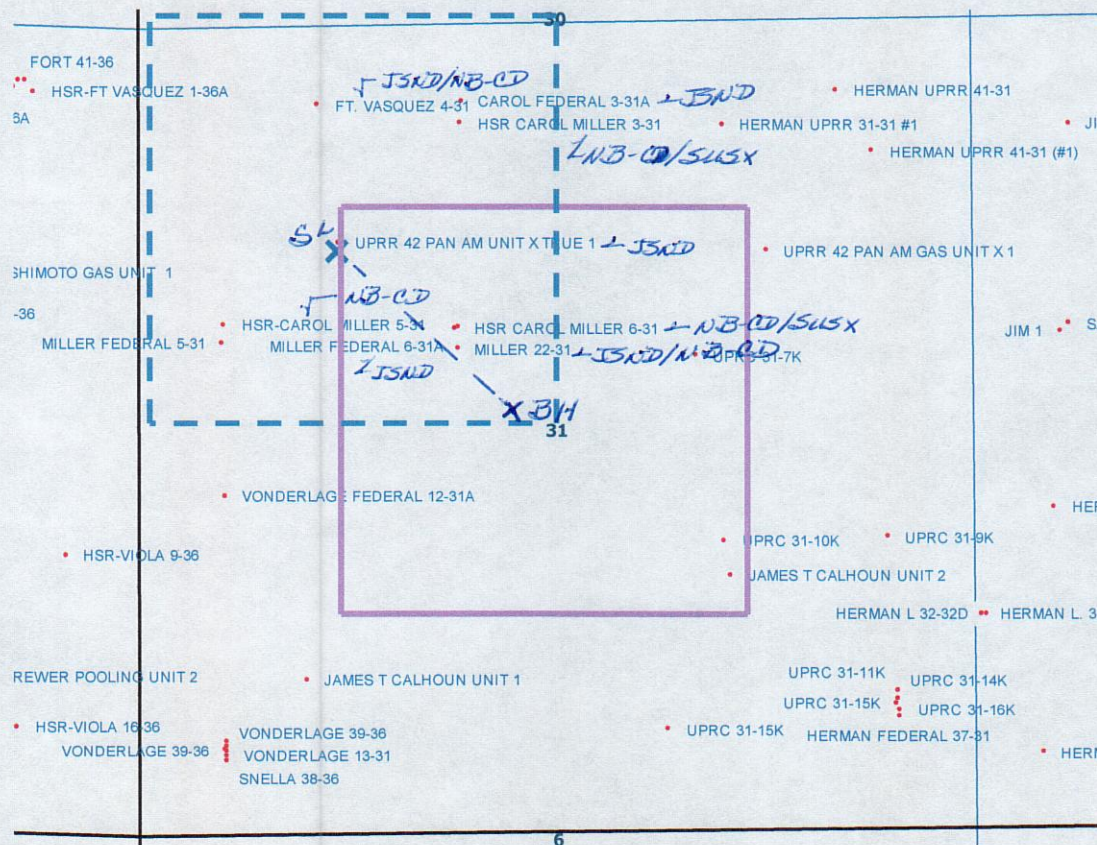 30
FORT 41-36
HSR-FT VASQUEZ 1-36A
6A
JSND/NB-CD
FT. VASQUEZ 4-31
CAROL FEDERAL 3-31A
JSND
HSR CAROL MILLER 3-31
NB-CD/SUSX
HERMAN UPRR 41-31
HERMAN UPRR 31-31 #1
HERMAN UPRR 41-31 (#1)
JI
SL
X
UPRR 42 PAN AM UNIT X TRUE 1
JSND
UPRR 42 PAN AM GAS UNIT X 1
SHIMOTO GAS UNIT 1
-36
NB-CD
HSR-CAROL MILLER 5-31
HSR CAROL MILLER 6-31
NB-CD/SUSX
JIM 1
S
MILLER FEDERAL 5-31
MILLER FEDERAL 6-31A
MILLER 22-31
JSND/NB-CD
31-7K
JSND
X BH
31
VONDERLAGE FEDERAL 12-31A
HER
HSR-VIOLA 9-36
UPRC 31-10K
UPRC 31-9K
JAMES T CALHOUN UNIT 2
HERMAN L 32-32D
HERMAN L. 3
REWER POOLING UNIT 2
JAMES T CALHOUN UNIT 1
UPRC 31-11K
UPRC 31-14K
UPRC 31-15K
UPRC 31-16K
HSR-VIOLA 16-36
VONDERLAGE 39-36
UPRC 31-15K
HERMAN FEDERAL 37-31
VONDERLAGE 39-36
VONDERLAGE 13-31
HERM
SNELLA 38-36
6